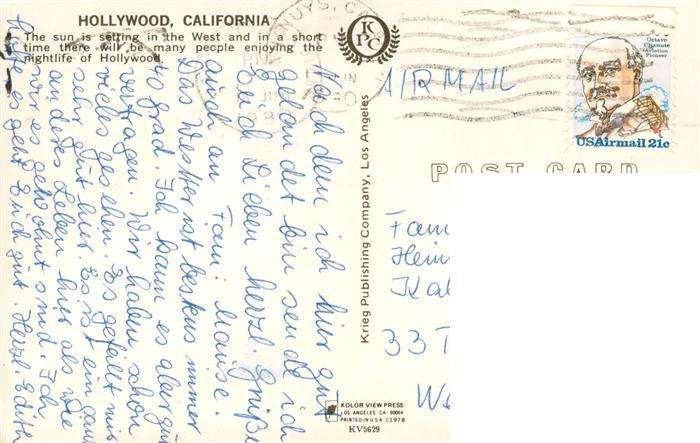 HOLLYWOOD, CALIFORNIA
The sun is setting in the West and in a short
time there will be many people enjoying the
nightlife of Hollywood.
KPC
NUYS, C
PM
JUN
AIR MAIL
Octave
Chanute
Aviation
Pioneer
USAirmail 21c
POST CARD
Krieg Publishing Company, Los Angeles
Nach dem ich hier gut
gelandet bin sende ich
Euch Lieben herzl. Grüße
auch an Fam. Mause.
Das Wetter ist bestens immer
40 grad. Ich kann es aber gut
vertragen. Wir haben schon
vieles gesehen. Es gefällt mir
sehr gut hier. Es ist ein ganz
anderes Leben hier als wie
wir es gewohnt sind. Ich
es geht Euch gut. Herzl. Edith
Fam
Hein
Kal
33 T
We
KOLOR VIEW PRESS
LOS ANGELES, CA. 90064
PRINTED IN U.S.A. ©1978
KV5629